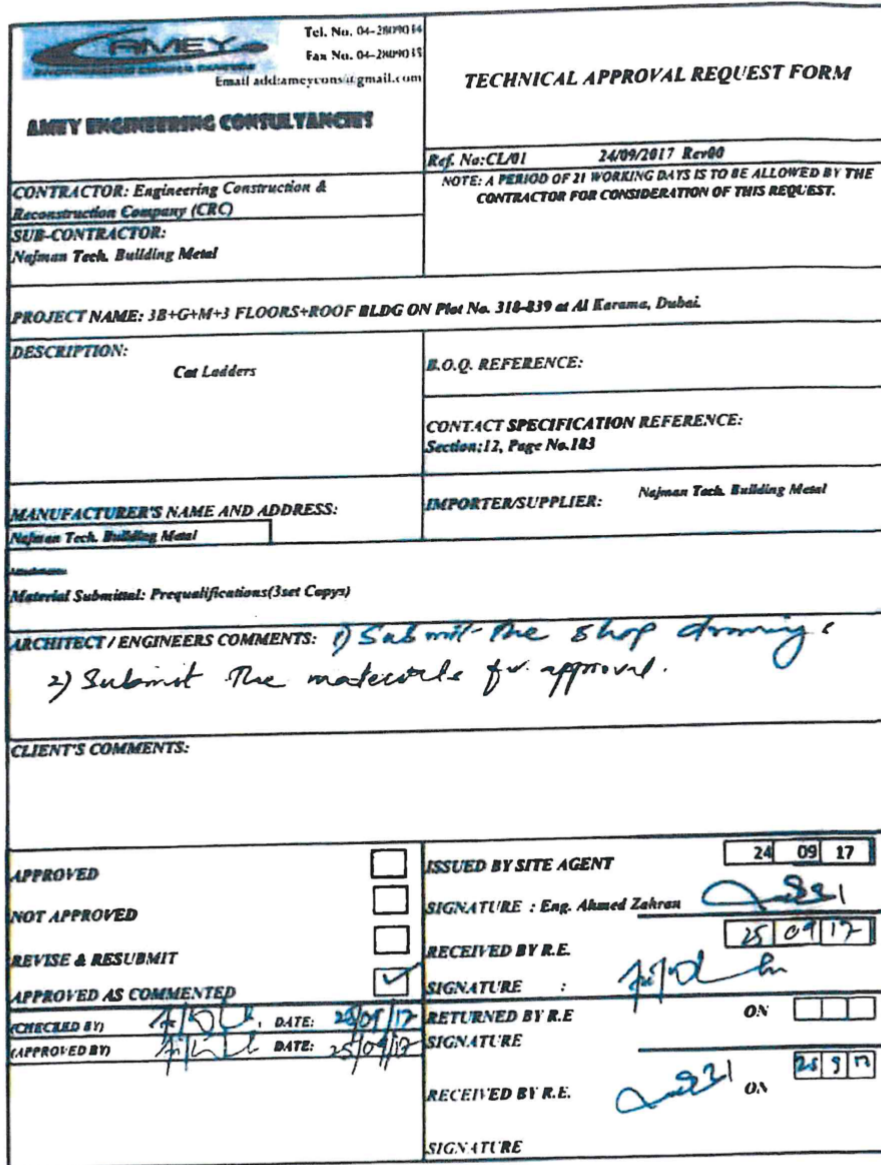 AMEY
Tel. No. 04-2809044
Fax No. 04-2809045
Email add:ameycons@gmail.com
AMEY ENGINEERING CONSULTANCIES
TECHNICAL APPROVAL REQUEST FORM
Ref. No:CL/01 24/09/2017 Rev00
NOTE: A PERIOD OF 21 WORKING DAYS IS TO BE ALLOWED BY THE
CONTRACTOR FOR CONSIDERATION OF THIS REQUEST.
CONTRACTOR: Engineering Construction &
Reconstruction Company (CRC)
SUB-CONTRACTOR:
Najman Tech. Building Metal
PROJECT NAME: 3B+G+M+3 FLOORS+ROOF BLDG ON Plot No. 318-839 at Al Karama, Dubai.
DESCRIPTION:
Cat Ladders
B.O.Q. REFERENCE:
CONTACT SPECIFICATION REFERENCE:
Section;12, Page No.183
MANUFACTURER'S NAME AND ADDRESS:
Najman Tech. Building Metal
IMPORTER/SUPPLIER: Najman Tech. Building Metal
Material Submittal: Prequalifications(3set Copys)
ARCHITECT / ENGINEERS COMMENTS: 1) Submit the shop drawings
2) Submit the materials for approval.
CLIENT'S COMMENTS:
APPROVED
NOT APPROVED
REVISE & RESUBMIT
APPROVED AS COMMENTED
(CHECKED BY) DATE: 25/09/17
(APPROVED BY) DATE: 25/09/17
ISSUED BY SITE AGENT 24 09 17
SIGNATURE : Eng. Ahmed Zahran
25 09 17
RECEIVED BY R.E.
SIGNATURE :
RETURNED BY R.E ON
SIGNATURE
RECEIVED BY R.E. ON 25 9 17
SIGNATURE